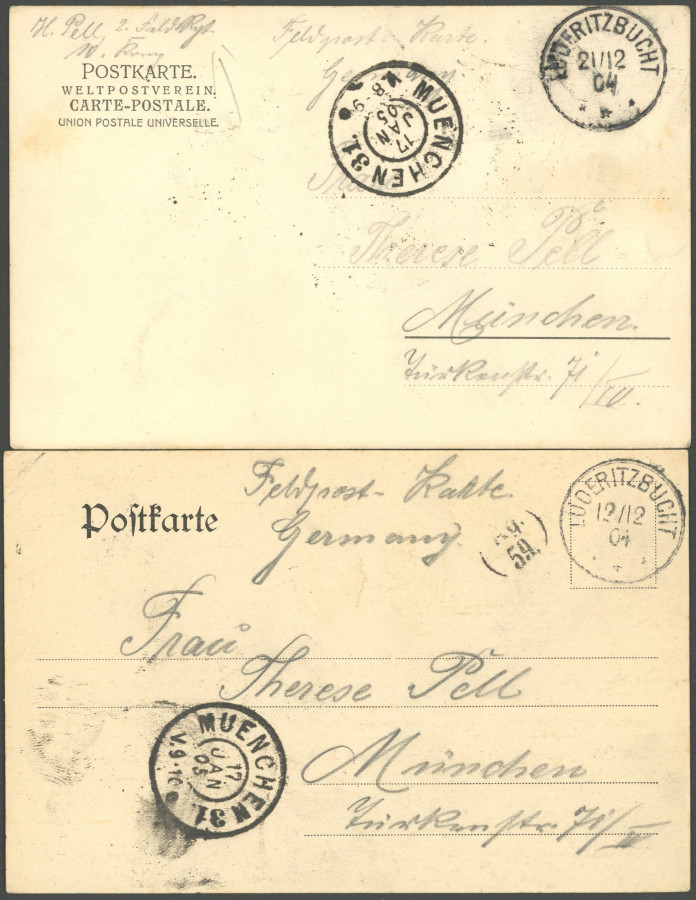 H. Pell, 2. Feld Rgt.
10. Komp
Feldpost-Karte.
Germany
POSTKARTE.
WELTPOSTVEREIN.
CARTE-POSTALE.
UNION POSTALE UNIVERSELLE.
LÜDERITZBUCHT
21/12
04
MUENCHEN 31.
17
JAN
05
V.8-9
Frau
Therese Pell
München.
Türkenstr. 71/IV.
Feldpost-Karte.
Germany
Postkarte
59.
LÜDERITZBUCHT
12/12
04
Frau
Therese Pell
MUENCHEN 31.
17
JAN
05
V.9-10
München
Türkenstr. 71/IV